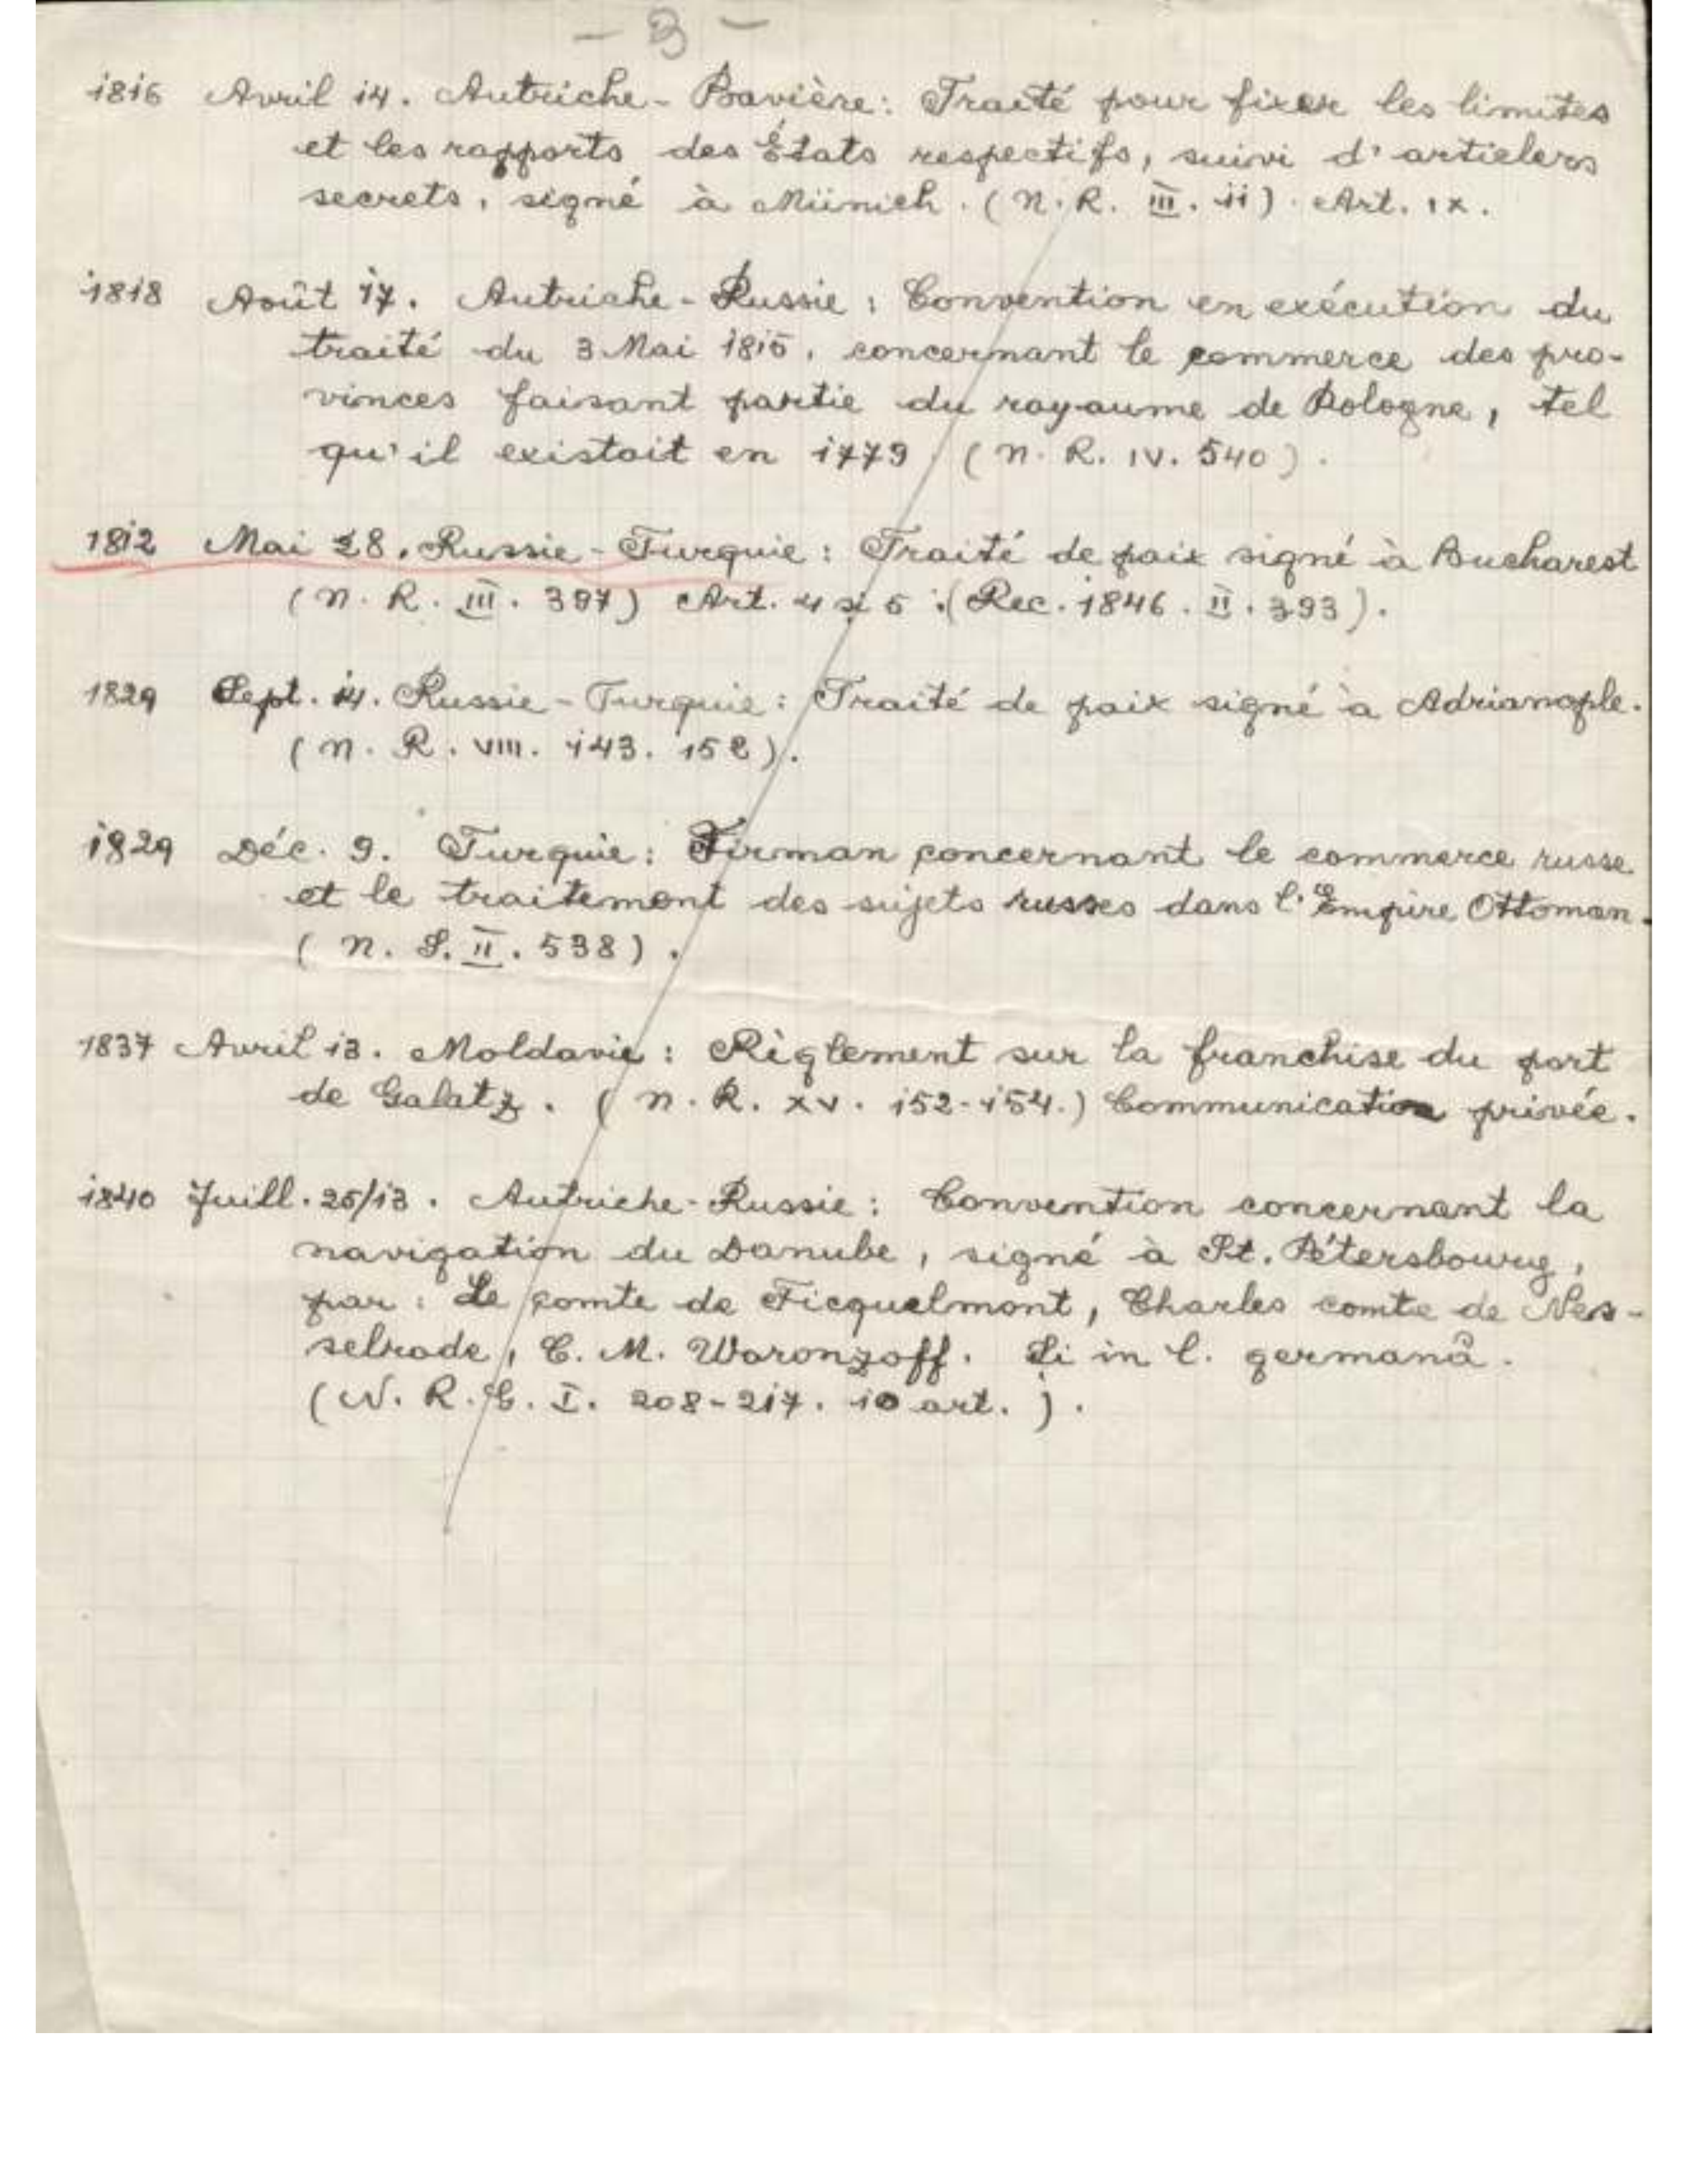 - 3 -
1816 Avril 14. Autriche-Bavière: Traité pour fixer les limites
et les rapports des États respectifs, suivi d'articlers
secrets, signé à Münich. (N. R. III. ii) Art. IX.
1818 Août 17. Autriche-Russie: Convention en exécution du
traité du 3 Mai 1815, concernant le commerce des pro-
vinces faisant partie du royaume de Pologne, tel
qu'il existait en 1779 (N. R. IV. 540).
1812 Mai 28. Russie-Turquie: Traité de paix signé à Bucharest
(N. R. III. 397) Art. 4 și 5. (Rec. 1846. II. 393).
1829 Sept. 14. Russie-Turquie: Traité de paix signé à Adrianople.
(N. R. VIII. 143. 152).
1829 Déc. 9. Turquie: Firman concernant le commerce russe
et le traitement des sujets russes dans l'Empire Ottoman.
(N. S. II. 538).
1837 Avril 13. Moldavie: Règlement sur la franchise du port
de Galatz. (N. R. XV. 152-154.) Communication privée.
1840 Juill. 25/13. Autriche-Russie: Convention concernant la
navigation du Danube, signé à St. Pétersbourg,
par: Le comte de Ficquelmont, Charles comte de Nes-
selrode, C. M. Woronzoff. Și in l. germană.
(N. R. G. I. 208-217. 10 art.).